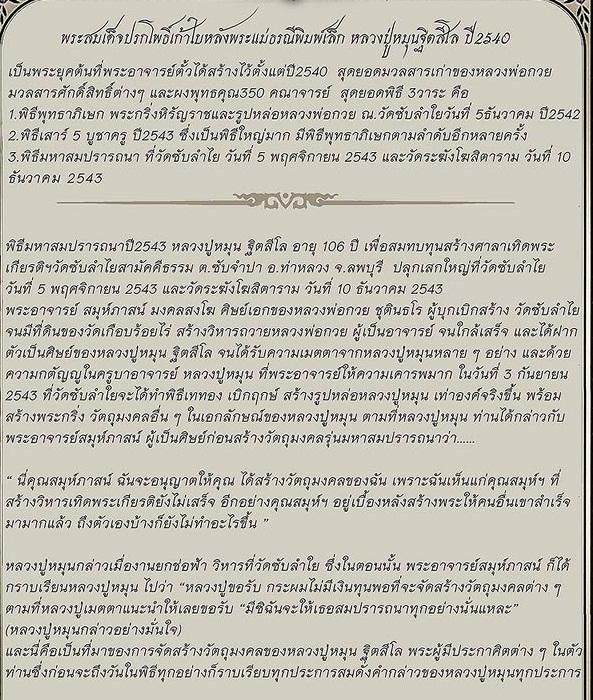 พระสมเด็จปรกโพธิ์เก้าใบหลังพระแม่ธรณีพิมพ์เล็ก หลวงปู่หมุนฐิตสีโล ปี2540
เป็นพระยุคต้นที่พระอาจารย์ตั้วได้สร้างไว้ตั้งแต่ปี2540 สุดยอดมวลสารเก่าของหลวงพ่อกวย
มวลสารศักดิ์สิทธิ์ต่างๆ และผงพุทธคุณ350 คณาจารย์ สุดยอดพิธี 3วาระ คือ
1.พิธีพุทธาภิเษก พระกริ่งหิรัญราชและรูปหล่อหลวงพ่อกวย ณ.วัดซับลำใยวันที่ 5ธันวาคม ปี2542
2.พิธีเสาร์ 5 บูชาครู ปี2543 ซึ่งเป็นพิธีใหญ่มาก มีพิธีพุทธาภิเษกตามลำดับอีกหลายครั้ง
3.พิธีมหาสมปรารถนา ที่วัดซับลำไย วันที่ 5 พฤศจิกายน 2543 และวัดระฆังโฆสิตาราม วันที่ 10
ธันวาคม 2543
พิธีมหาสมปรารถนาปี2543 หลวงปู่หมุน ฐิตสีโล อายุ 106 ปี เพื่อสมทบทุนสร้างศาลาเทิดพระ
เกียรติฯวัดซับลำใยสามัคคีธรรม ต.ซับจำปา อ.ท่าหลวง จ.ลพบุรี ปลุกเสกใหญ่ที่วัดซับลำไย
วันที่ 5 พฤศจิกายน 2543 และวัดระฆังโฆสิตาราม วันที่ 10 ธันวาคม 2543
พระอาจารย์ สมุห์ภาสน์ มงคลสงโฆ ศิษย์เอกของหลวงพ่อกวย ชุตินธโร ผู้บุกเบิกสร้าง วัดซับลำไย
จนมีที่ดินของวัดเกือบร้อยไร่ สร้างวิหารถวายหลวงพ่อกวย ผู้เป็นอาจารย์ จนใกล้เสร็จ และได้ฝาก
ตัวเป็นศิษย์ของหลวงปู่หมุน ฐิตสีโล จนได้รับความเมตตาจากหลวงปู่หมุนหลาย ๆ อย่าง และด้วย
ความกตัญญูในครูบาอาจารย์ หลวงปู่หมุน ที่พระอาจารย์ให้ความเคารพมาก ในวันที่ 3 กันยายน
2543 ที่วัดซับลำใยจะได้ทำพิธีเททอง เบิกฤกษ์ สร้างรูปหล่อหลวงปู่หมุน เท่าองค์จริงขึ้น พร้อม
สร้างพระกริ่ง วัตถุมงคลอื่น ๆ ในเอกลักษณ์ของหลวงปู่หมุน ตามที่หลวงปู่หมุน ท่านได้กล่าวกับ
พระอาจารย์สมุห์ภาสน์ ผู้เป็นศิษย์ก่อนสร้างวัตถุมงคลรุ่นมหาสมปรารถนาว่า......
“ นี่คุณสมุห์ภาสน์ ฉันจะอนุญาตให้คุณ ได้สร้างวัตถุมงคลของฉัน เพราะฉันเห็นแก่คุณสมุห์ฯ ที่
สร้างวิหารเทิดพระเกียรติยังไม่เสร็จ อีกอย่างคุณสมุห์ฯ อยู่เบื้องหลังสร้างพระให้คนอื่นเขาสำเร็จ
มามากแล้ว ถึงตัวเองบ้างก็ยังไม่ทำอะไรขึ้น ”
หลวงปู่หมุนกล่าวเมื่องานยกช่อฟ้า วิหารที่วัดซับลำใย ซึ่งในตอนนั้น พระอาจารย์สมุห์ภาสน์ ก็ได้
กราบเรียนหลวงปู่หมุน ไปว่า “หลวงปู่ขอรับ กระผมไม่มีเงินทุนพอที่จะจัดสร้างวัตถุมงคลต่าง ๆ
ตามที่หลวงปู่เมตตาแนะนำให้เลยขอรับ “มีซิฉันจะให้เธอสมปรารถนาทุกอย่างนั่นแหละ”
(หลวงปู่หมุนกล่าวอย่างมั่นใจ)
และนี่คือเป็นที่มาของการจัดสร้างวัตถุมงคลของหลวงปู่หมุน ฐิตสีโล พระผู้มีประกาศิตต่าง ๆ ในตัว
ท่านซึ่งก่อนจะถึงวันในพิธีทุกอย่างก็ราบเรียบทุกประการสมดั่งคำกล่าวของหลวงปู่หมุนทุกประการ